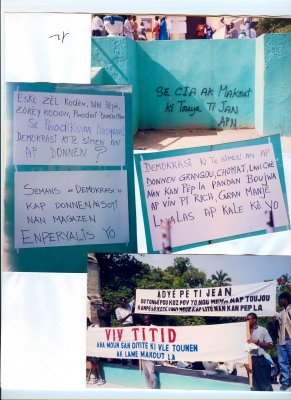 ESKE ZEL KODENN, DIRI Pepe,
ZORÈY KOCHON, Poud
Se Pwodiksyon Nasyonal
DEMOKRASI KI TE SIMEN AN
AP DONNEN ?
SEMANS DEMOKRASI
KAP DONNEN
NAN MAGAZEN
ENPERYALIS YO
SE CIA AK Makout
ki Touye Ti JAN
APN
DEMOKRASI KI TE SIMEN AN AP
DONNEN GRANGOU, CHOMAJ, LAVI CHÈ
NAN KAN PEP LA PANDAN BOUJWA
AP VIN PI RICH, GRAN MANJÈ
LAVALAS AP KALE KÒ YO
ADYE PE TI JEAN
VIV TITID
ABA MOUN SAN DIYITE KI VLE TOUNEN
AK LAME MAKOUT LA